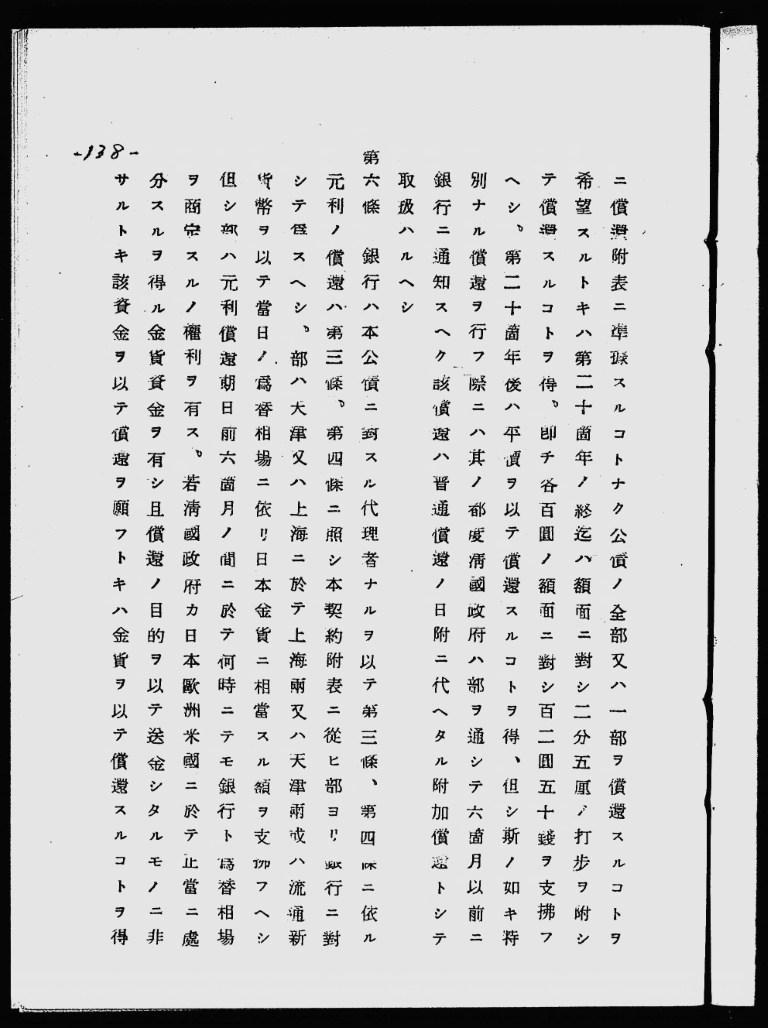 ニ償還附表ニ準據スルコトナク公債ノ全部又ハ一部ヲ償還スルコトヲ
希望スルトキハ第二十箇年ノ終迄ハ額面ニ對シ二分五厘ノ打步ヲ附シ
テ償還スルコトヲ得。卽チ各百圓ノ額面ニ對シ百二圓五十錢ヲ支拂フ
ヘシ。第二十箇年後ハ平價ヲ以テ償還スルコトヲ得、但シ斯ノ如キ特
別ナル償還ヲ行フ際ニハ其ノ都度淸國政府ハ部ヲ通シテ六箇月以前ニ
銀行ニ通知スヘク該償還ハ普通償還ノ日附ニ代ヘタル附加償還トシテ
取扱ハルヘシ
第六條　銀行ハ本公債ニ對スル代理者ナルヲ以テ第三條、第四條ニ依ル
元利ノ償還ハ第三條、第四條ニ照シ本契約附表ニ從ヒ部ヨリ銀行ニ對
シテ爲スヘシ、部ハ天津又ハ上海ニ於テ上海兩又ハ天津兩或ハ流通新
貨幣ヲ以テ當日ノ爲替相場ニ依リ日本金貨ニ相當スル額ヲ支拂フヘシ
但シ部ハ元利償還期日前六箇月ノ間ニ於テ何時ニテモ銀行ト爲替相場
ヲ商定スルノ權利ヲ有ス。若淸國政府カ日本歐洲米國ニ於テ正當ニ處
分スルヲ得ル金貨資金ヲ有シ且償還ノ目的ヲ以テ送金シタルモノニ非
サルトキ該資金ヲ以テ償還ヲ願フトキハ金貨ヲ以テ償還スルコトヲ得
-138-